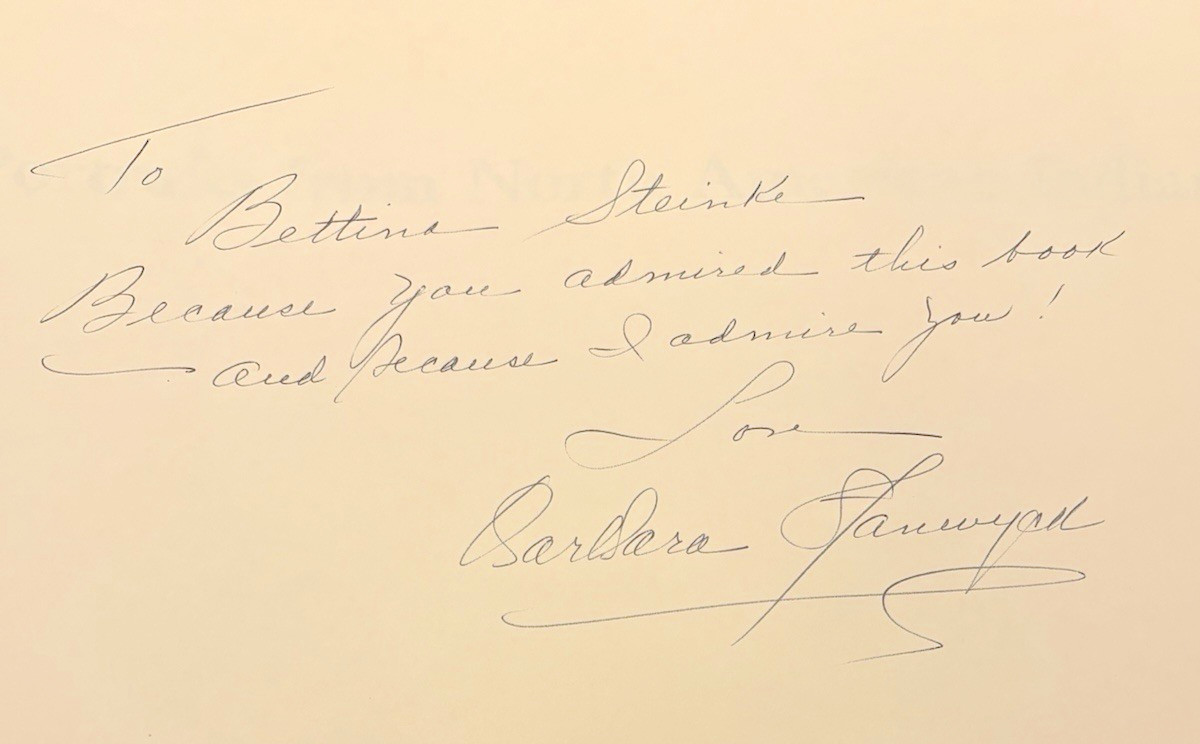 To
Bettina Steinke
Because you admired this book
and because I admire you!
Love
Barbara Stanwyck